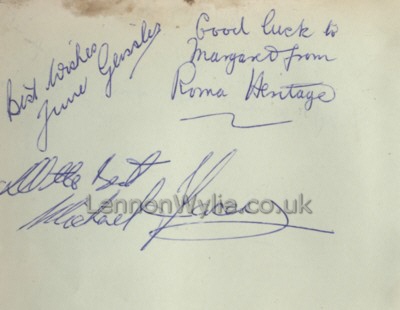 Best Wishes
June
Good luck to
Margaret from
Roma Heritage
All the Best
Michael
LennonWylie.co.uk